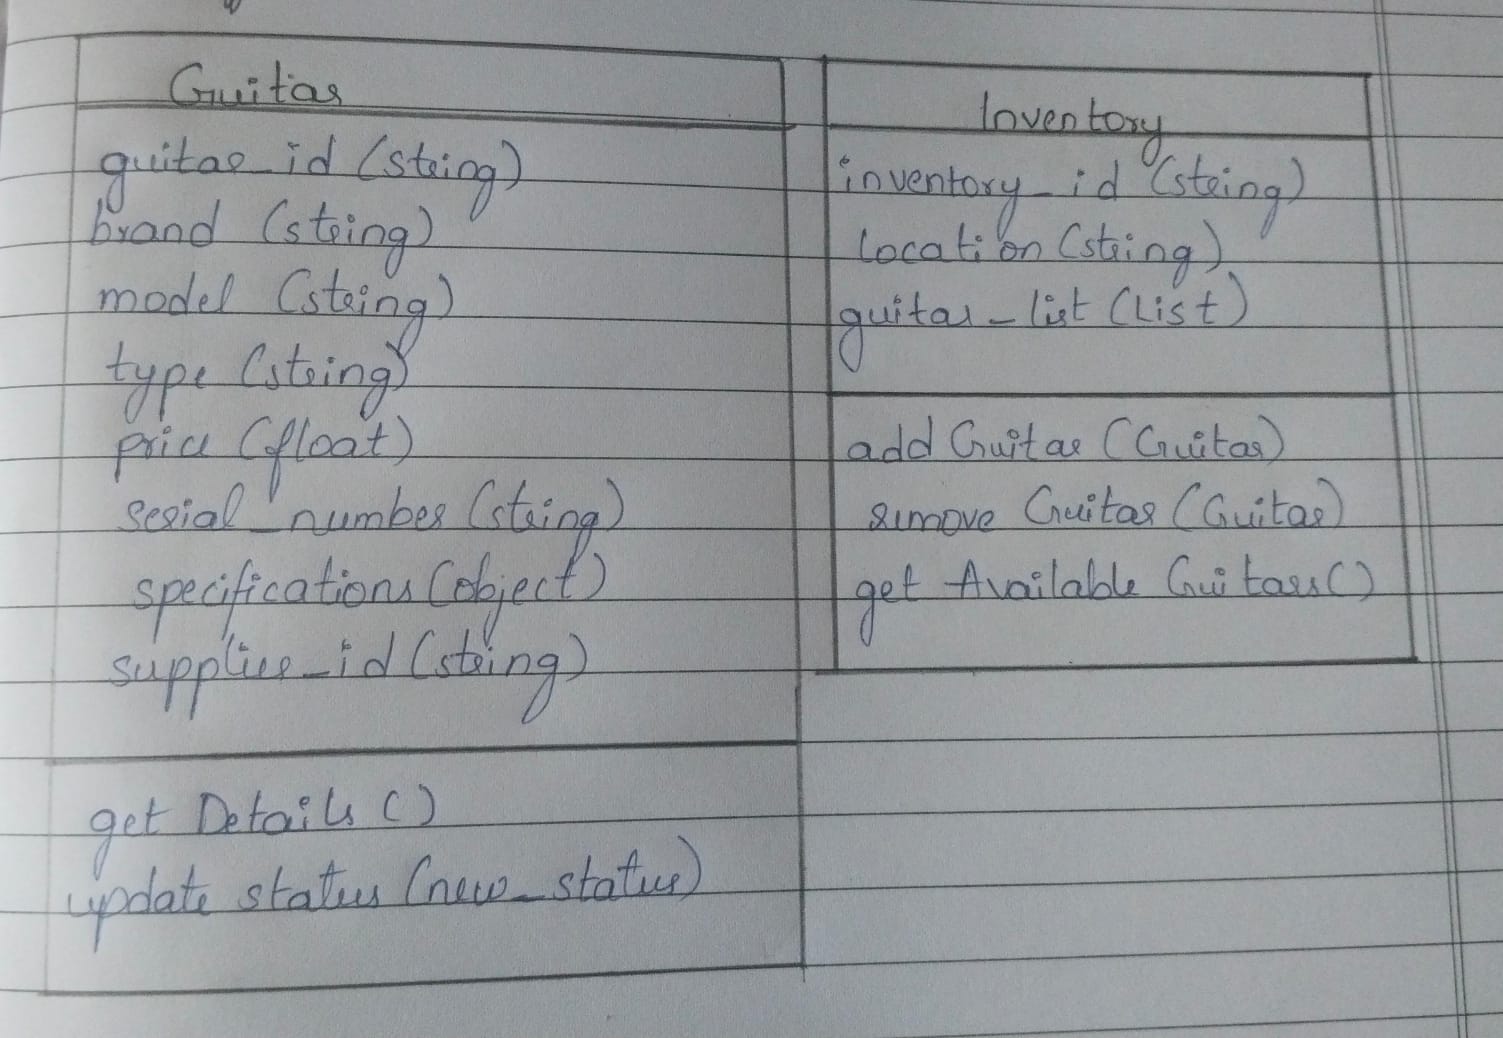 Guitar
guitar_id (string)
brand (string)
model (string)
type (string)
price (float)
serial_number (string)
specifications (object)
supplier_id (string)
get Details ()
update status (new_status)
Inventory
inventory_id (string)
location (string)
guitar_list (List)
add Guitar (Guitar)
remove Guitar (Guitar)
get Available Guitars ()